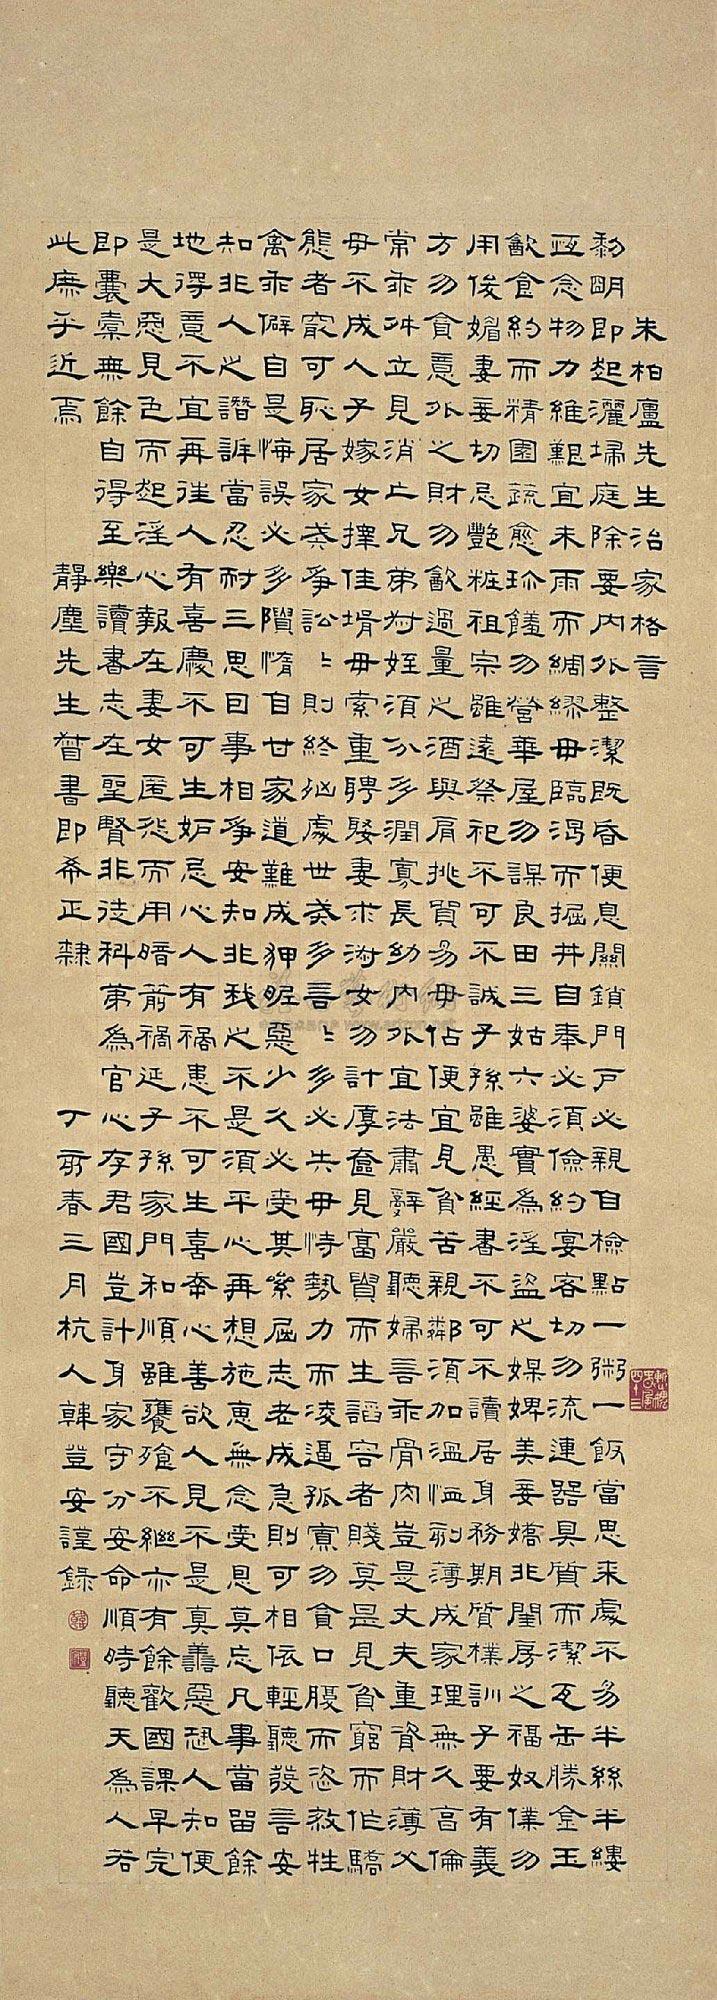 朱柏廬先生治家格言
黎明即起灑埽庭除要内外整潔既昏便息關鎖門戶必親自檢點一粥一飯當思來處不易半絲半縷
恆念物力維艱宜未雨而綢繆毋臨渴而掘井自奉必須儉約宴客切勿流連器具質而潔瓦缶勝金玉
飲食約而精園蔬愈珍饈勿營華屋勿謀良田三姑六婆實為淫盜之媒婢美妾嬌非閨房之福奴僕勿
用俊媚妻妾切忌艷粧祖宗雖遠祭祀不可不誠子孫雖愚經書不可不讀居身務期質樸訓子要有義
方勿貪意外之財勿飲過量之酒與肩挑貿易毋佔便宜見貧苦親鄰須加溫恤刻薄成家理無久享倫
常乖舛立見消亡兄弟叔姪須分多潤寡長幼内外宜法肅辭嚴聽婦言乖骨肉豈是丈夫重資財薄父
母不成人子嫁女擇佳壻毋索重聘娶妻求淑女勿計厚奩見富貴而生諂容者賤莫甚見貧窮而作驕
態者最可恥居家戒爭訟〻則終凶處世戒多言〻多必失毋恃勢力而凌逼孤寡勿貪口腹而恣殺牲
禽乖僻自是悔誤必多隤惰自甘家道難成狎昵惡少久必受其累屈志老成急則可相依輕聽發言安
知非人之譖訴當忍耐三思因事相爭安知非我之不是須平心再想施惠無念受恩莫忘凡事當留餘
地得意不宜再往人有喜慶不可生妒忌心人有禍患不可生喜幸心善欲人見不是真善惡恐人知便
是大惡見色而起淫心報在妻女匿怨而用暗箭禍延子孫家門和順雖饔飧不繼亦有餘歡國課早完
即囊橐無餘自得至樂讀書志在聖賢非徒科第為官心存君國豈計身家守分安命順時聽天為人若
此庶乎近焉 靜塵先生督書即希正隸 丁亥春三月杭人韓登安謹錄